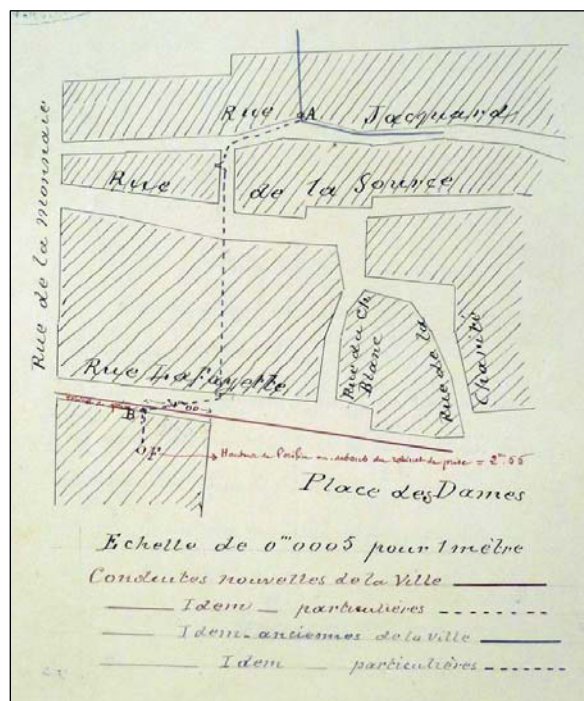 Rue Jacquard
A
Rue de la Source
Rue de la monnaie
Rue Lafayette
Rue du Ch. Blanc
Rue de la Charité
B
F
Hauteur de l'orifice au dessous du robinet de prise = 2m55
Place des Dames
Echelle de 0m0005 pour 1 mètre
Conduites nouvelles de la Ville
Idem particulières
Idem anciennes de la Ville
Idem particulières